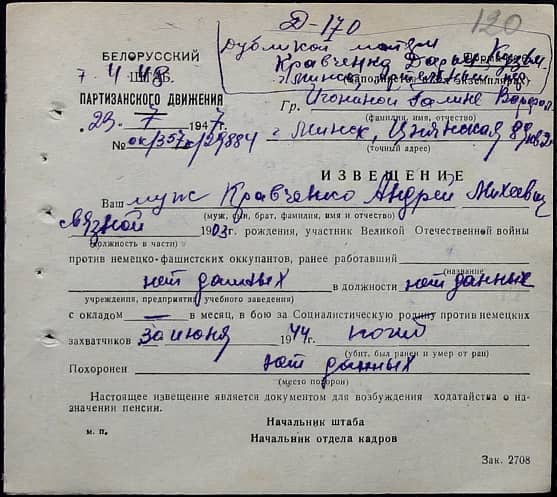 Д-170
120
Дубликат матери
Кравченко Дарьи
БЕЛОРУССКИЙ
ШТАБ
ПАРТИЗАНСКОГО ДВИЖЕНИЯ
23 7 1947
№ ок/357к/29884
Гр. Игониной Галине
(фамилия, имя, отчество)
г. Минск, Цнянская
(точный адрес)
ИЗВЕЩЕНИЕ
Ваш муж Кравченко Андрей Михеевич
(муж, сын, брат, фамилия, имя и отчество)
связной 1903 рождения, участник Великой Отечественной войны
(должность в части)
против немецко-фашистских оккупантов, ранее работавший
(название
нет данных в должности нет данных
учреждения, предприятия, учебного заведения)
с окладом — в месяц, в бою за Социалистическую родину против немецких
захватчиков 30 июня 1944 г. погиб
(убит, был ранен и умер от ран)
Похоронен нет данных
(место похорон)
Настоящее извещение является документом для возбуждения ходатайства о на-
значении пенсии.
Начальник штаба
м. п.
Начальник отдела кадров
Зак. 2708